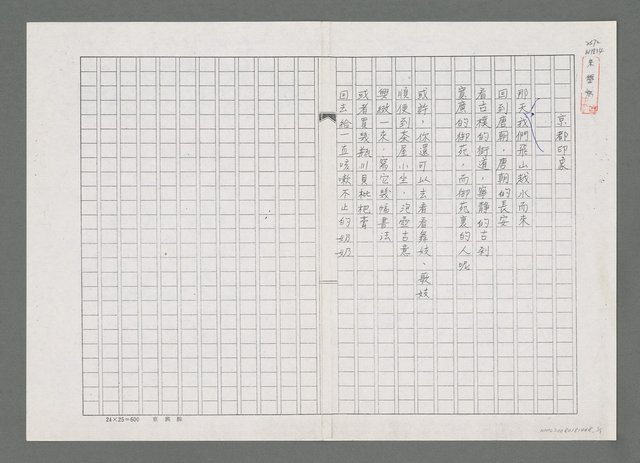 京都印象
那天我們飛山越水而來
回到唐朝，唐朝的長安
看古樸的街道，寧靜的古剎
寬廣的御苑，而御苑裏的人呢
或許，你還可以去看看舞妓、歌妓
順便到茶屋小坐，泡壺古意
興緻一來，寫它幾幅書法
或者買幾瓶川貝枇杷膏
回去給一直咳嗽不止的奶奶
24×25=600